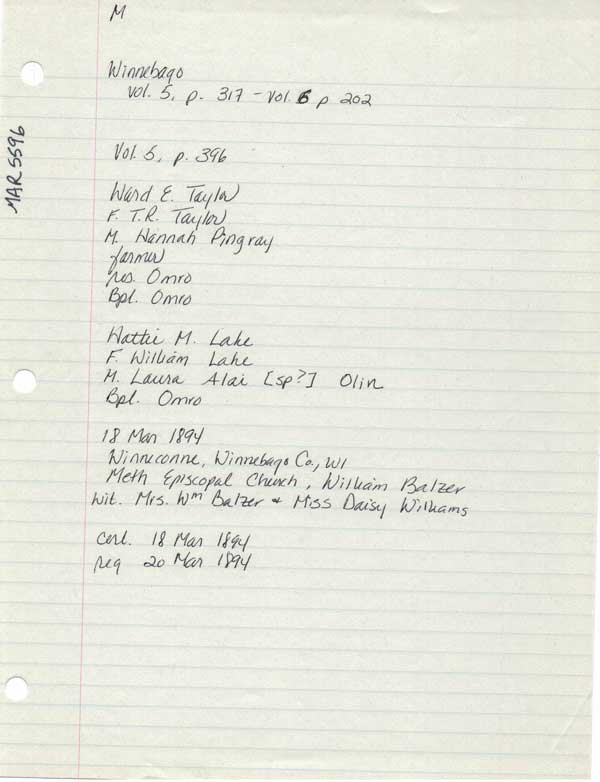 M
Winnebago
Vol. 5, p. 317 - Vol. 6 p 202
MAR 5596
Vol. 5, p. 396
Ward E. Taylor
F. T.R. Taylor
M. Hannah Pingray
farmer
res. Omro
Bpl. Omro
Hattie M. Lake
F. William Lake
M. Laura Alai [sp?] Olin
Bpl. Omro
18 Mar 1894
Winneconne, Winnebago Co., WI
Meth Episcopal Church, William Balzer
Wit. Mrs. Wm Balzer & Miss Daisy Williams
Cert. 18 Mar 1894
reg 20 Mar 1894